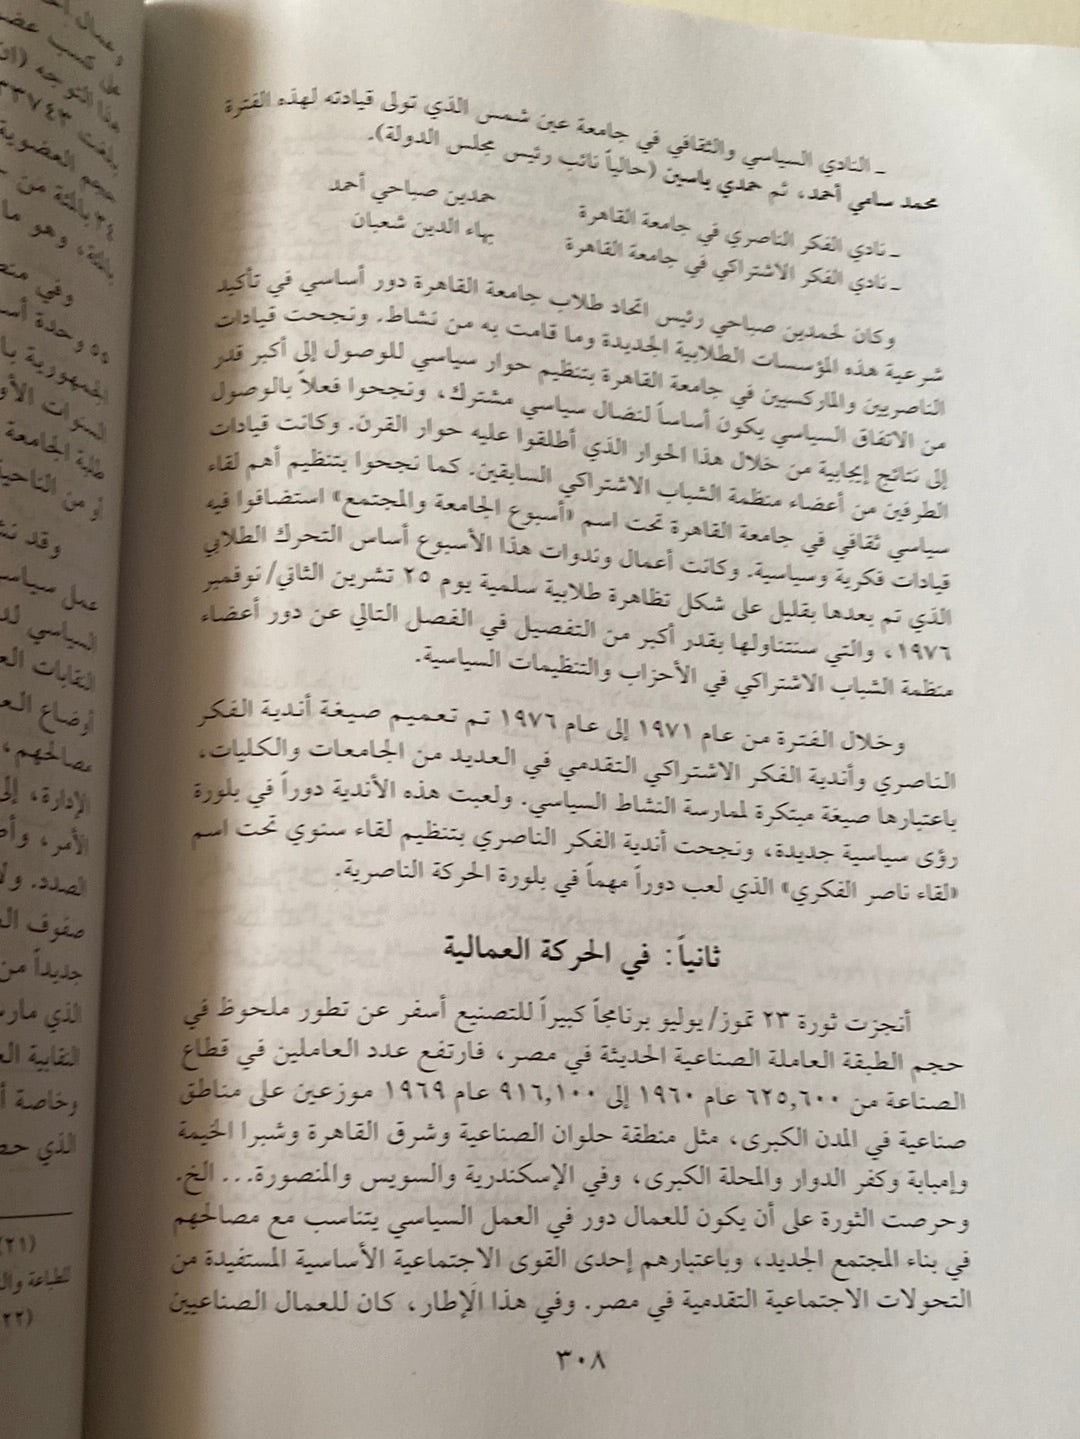 ـ النادي السياسي والثقافي في جامعة عين شمس الذي تولى قيادته لهذه الفترة
محمد سامي أحمد، ثم حمدي ياسين (حالياً نائب رئيس مجلس الدولة).
ـ نادي الفكر الناصري في جامعة القاهرة حمدين صباحي أحمد
ـ نادي الفكر الاشتراكي في جامعة القاهرة بهاء الدين شعبان
وكان لحمدين صباحي رئيس اتحاد طلاب جامعة القاهرة دور أساسي في تأكيد
شرعية هذه المؤسسات الطلابية الجديدة وما قامت به من نشاط. ونجحت قيادات
الناصريين والماركسيين في جامعة القاهرة بتنظيم حوار سياسي للوصول إلى أكبر قدر
من الاتفاق السياسي يكون أساساً لنضال سياسي مشترك، ونجحوا فعلاً بالوصول
إلى نتائج إيجابية من خلال هذا الحوار الذي أطلقوا عليه حوار القرن. وكانت قيادات
الطرفين من أعضاء منظمة الشباب الاشتراكي السابقين. كما نجحوا بتنظيم أهم لقاء
سياسي ثقافي في جامعة القاهرة تحت اسم «أسبوع الجامعة والمجتمع» استضافوا فيه
قيادات فكرية وسياسية. وكانت أعمال وندوات هذا الأسبوع أساس التحرك الطلابي
الذي تم بعدها بقليل على شكل تظاهرة طلابية سلمية يوم ٢٥ تشرين الثاني/نوفمبر
١٩٧٦، والتي سنتناولها بقدر أكبر من التفصيل في الفصل التالي عن دور أعضاء
منظمة الشباب الاشتراكي في الأحزاب والتنظيمات السياسية.
وخلال الفترة من عام ١٩٧١ إلى عام ١٩٧٦ تم تعميم صيغة أندية الفكر
الناصري وأندية الفكر الاشتراكي التقدمي في العديد من الجامعات والكليات،
باعتبارها صيغة مبتكرة لممارسة النشاط السياسي. ولعبت هذه الأندية دوراً في بلورة
رؤى سياسية جديدة، ونجحت أندية الفكر الناصري بتنظيم لقاء سنوي تحت اسم
«لقاء ناصر الفكري» الذي لعب دوراً مهماً في بلورة الحركة الناصرية.
ثانياً: في الحركة العمالية
أنجزت ثورة ٢٣ تموز/يوليو برنامجاً كبيراً للتصنيع أسفر عن تطور ملحوظ في
حجم الطبقة العاملة الصناعية الحديثة في مصر، فارتفع عدد العاملين في قطاع
الصناعة من ٦٢٥,٦٠٠ عام ١٩٦٠ إلى ٩١٦,١٠٠ عام ١٩٦٩ موزعين على مناطق
صناعية في المدن الكبرى، مثل منطقة حلوان الصناعية وشرق القاهرة وشبرا الخيمة
وإمبابة وكفر الدوار والمحلة الكبرى، وفي الإسكندرية والسويس والمنصورة... الخ.
وحرصت الثورة على أن يكون للعمال دور في العمل السياسي يتناسب مع مصالحهم
في بناء المجتمع الجديد، وباعتبارهم إحدى القوى الاجتماعية الأساسية المستفيدة من
التحولات الاجتماعية التقدمية في مصر. وفي هذا الإطار، كان للعمال الصناعيين
٣٠٨